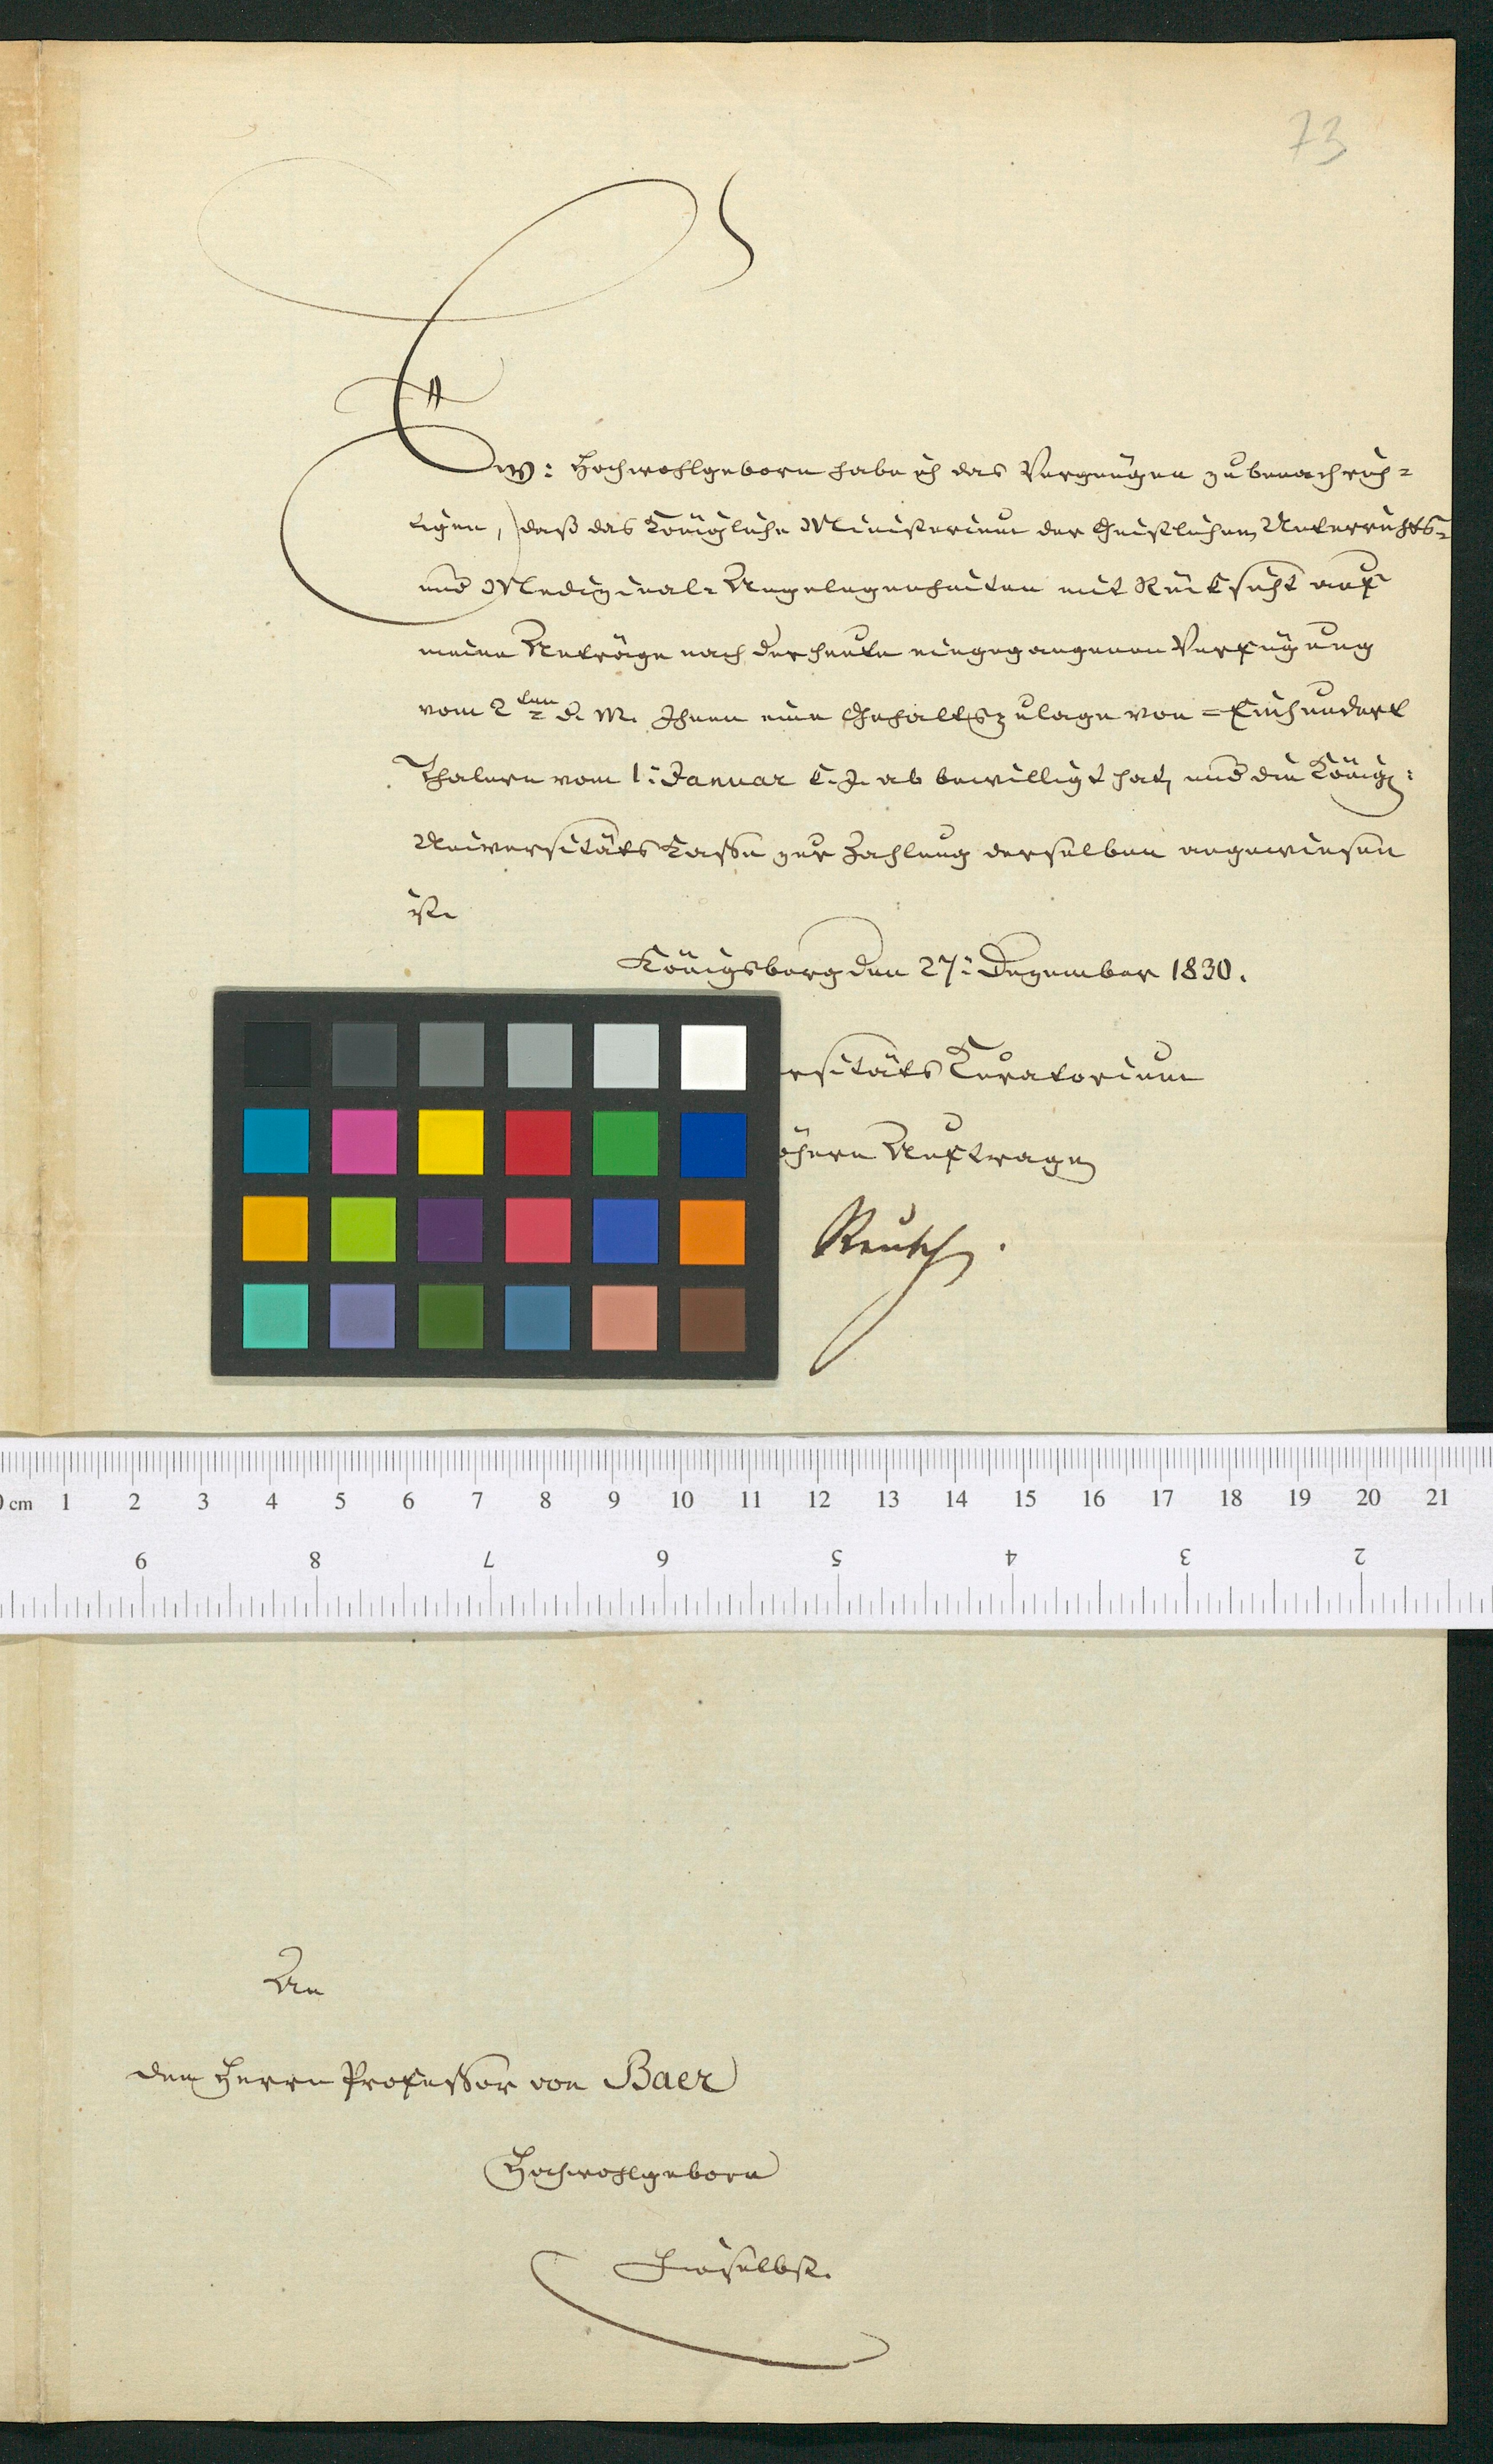 73
Ew: Hochwohlgeborn habe ich das Vergnügen zu benachrich=
tigen, daß das Königliche Ministerium der Geistlichen, Unterrichts=
und Medizinal-Angelegenheiten mit Rücksicht auf
meine Anträge nach der heute eingegangenen Verfügung
vom 2ten d. M. Ihnen eine Gehaltszulage von =Einhundert
Thalern vom 1: Januar k. J. ab bewilligt hat, und die Königl:
Universitäts Kasse zur Zahlung derselben angewiesen
ist.
Königsberg den 27: Dezember 1830.
ersitäts Curatorium
öhern Auftrage
Reusch.
0 cm 1 2 3 4 5 6 7 8 9 10 11 12 13 14 15 16 17 18 19 20 21
9 8 7 6 5 4 3 2
An
den Herrn Professor von Baer
Hochwohlgeborn
Hieselbst.